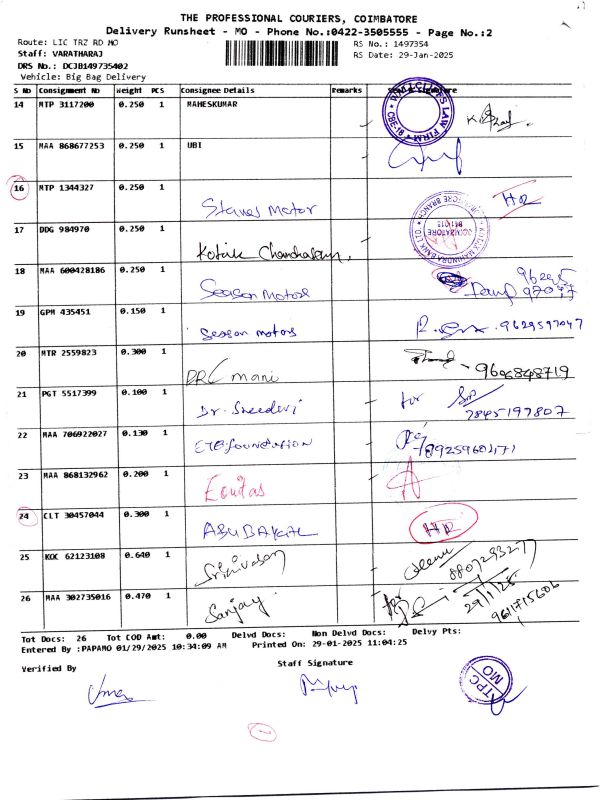 THE PROFESSIONAL COURIERS, COIMBATORE
Delivery Runsheet - MO - Phone No.:0422-3505555 - Page No.:2
Route: LIC TRZ RD MO
RS No.: 1497354
Staff: VARATHARAJ
RS Date: 29-Jan-2025
DRS No.: DCJB149735402
Vehicle: Big Bag Delivery
S No Consignment No Weight PCS Consignee Details Remarks Signature
14 MTP 3117200 0.250 1 MAHESKUMAR
15 MAA 868677253 0.250 1 UBI
16 MTP 1344327 0.250 1 Stanes Motor HR
17 DDG 984970 0.250 1 Kotak Chandrasan
18 MAA 600428186 0.250 1 Season Motors
19 GPM 435451 0.150 1 Season motors 9629597047
20 MTR 2559823 0.300 1 DRC mani 9698848719
21 PGT 5517399 0.100 1 Dr. Sreedevi for 7845197807
22 MAA 706922027 0.130 1 foundation 8925960471
23 MAA 868132962 0.200 1 Equitas
24 CLT 30457044 0.300 1 ABUBAKAR HR
25 KOC 62123108 0.640 1 Srinivasan
26 MAA 302735016 0.470 1 Sanjay for 29/1/25 9611715606
Tot Docs: 26 Tot COD Amt: 0.00 Delvd Docs: Non Delvd Docs: Delvy Pts:
Entered By :PAPAMO 01/29/2025 10:34:09 AM Printed On: 29-01-2025 11:04:25
Verified By
Staff Signature
Uma
TPC
MO
1